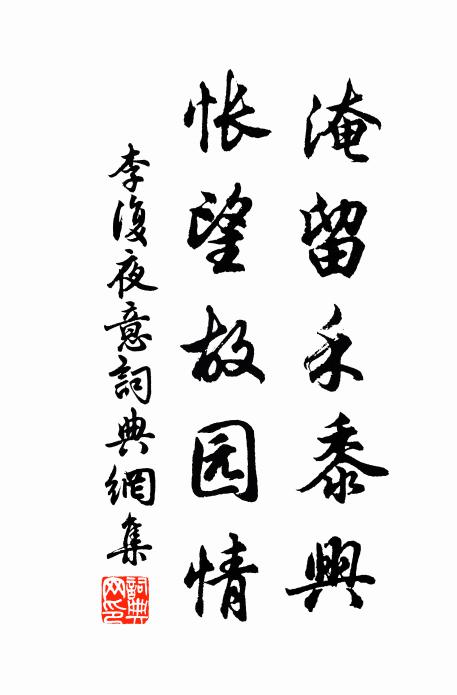 淹留禾黍興
悵望故园情
李復夜意詞典網集